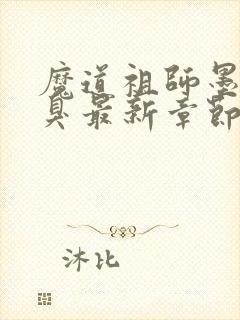 魔道祖師墨
臭最新章節
沐比